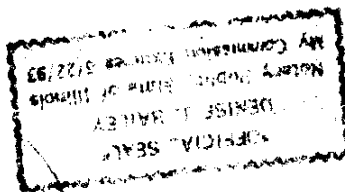 "OFFICIAL SEAL"
DENISE L. BAILEY
Notary Public, State of Illinois
My Commission Expires 5/22/93